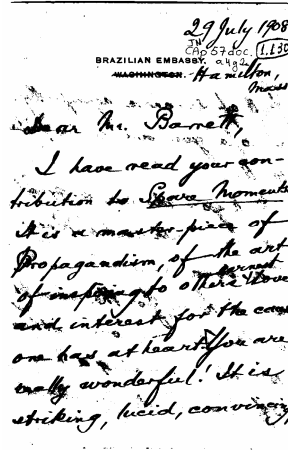 29 July 1908
BRAZILIAN EMBASSY.
WASHINGTON. Hamilton,
Mass
Dear Mr. Barrett,
I have read your con-
tribution to Spare Moments
it is a master-piece of
Propagandism, of the art
of inspiring to others love
earnest
and interest for the cause
one has at heart. You are
really wonderful! It is
striking, lucid, convincing,